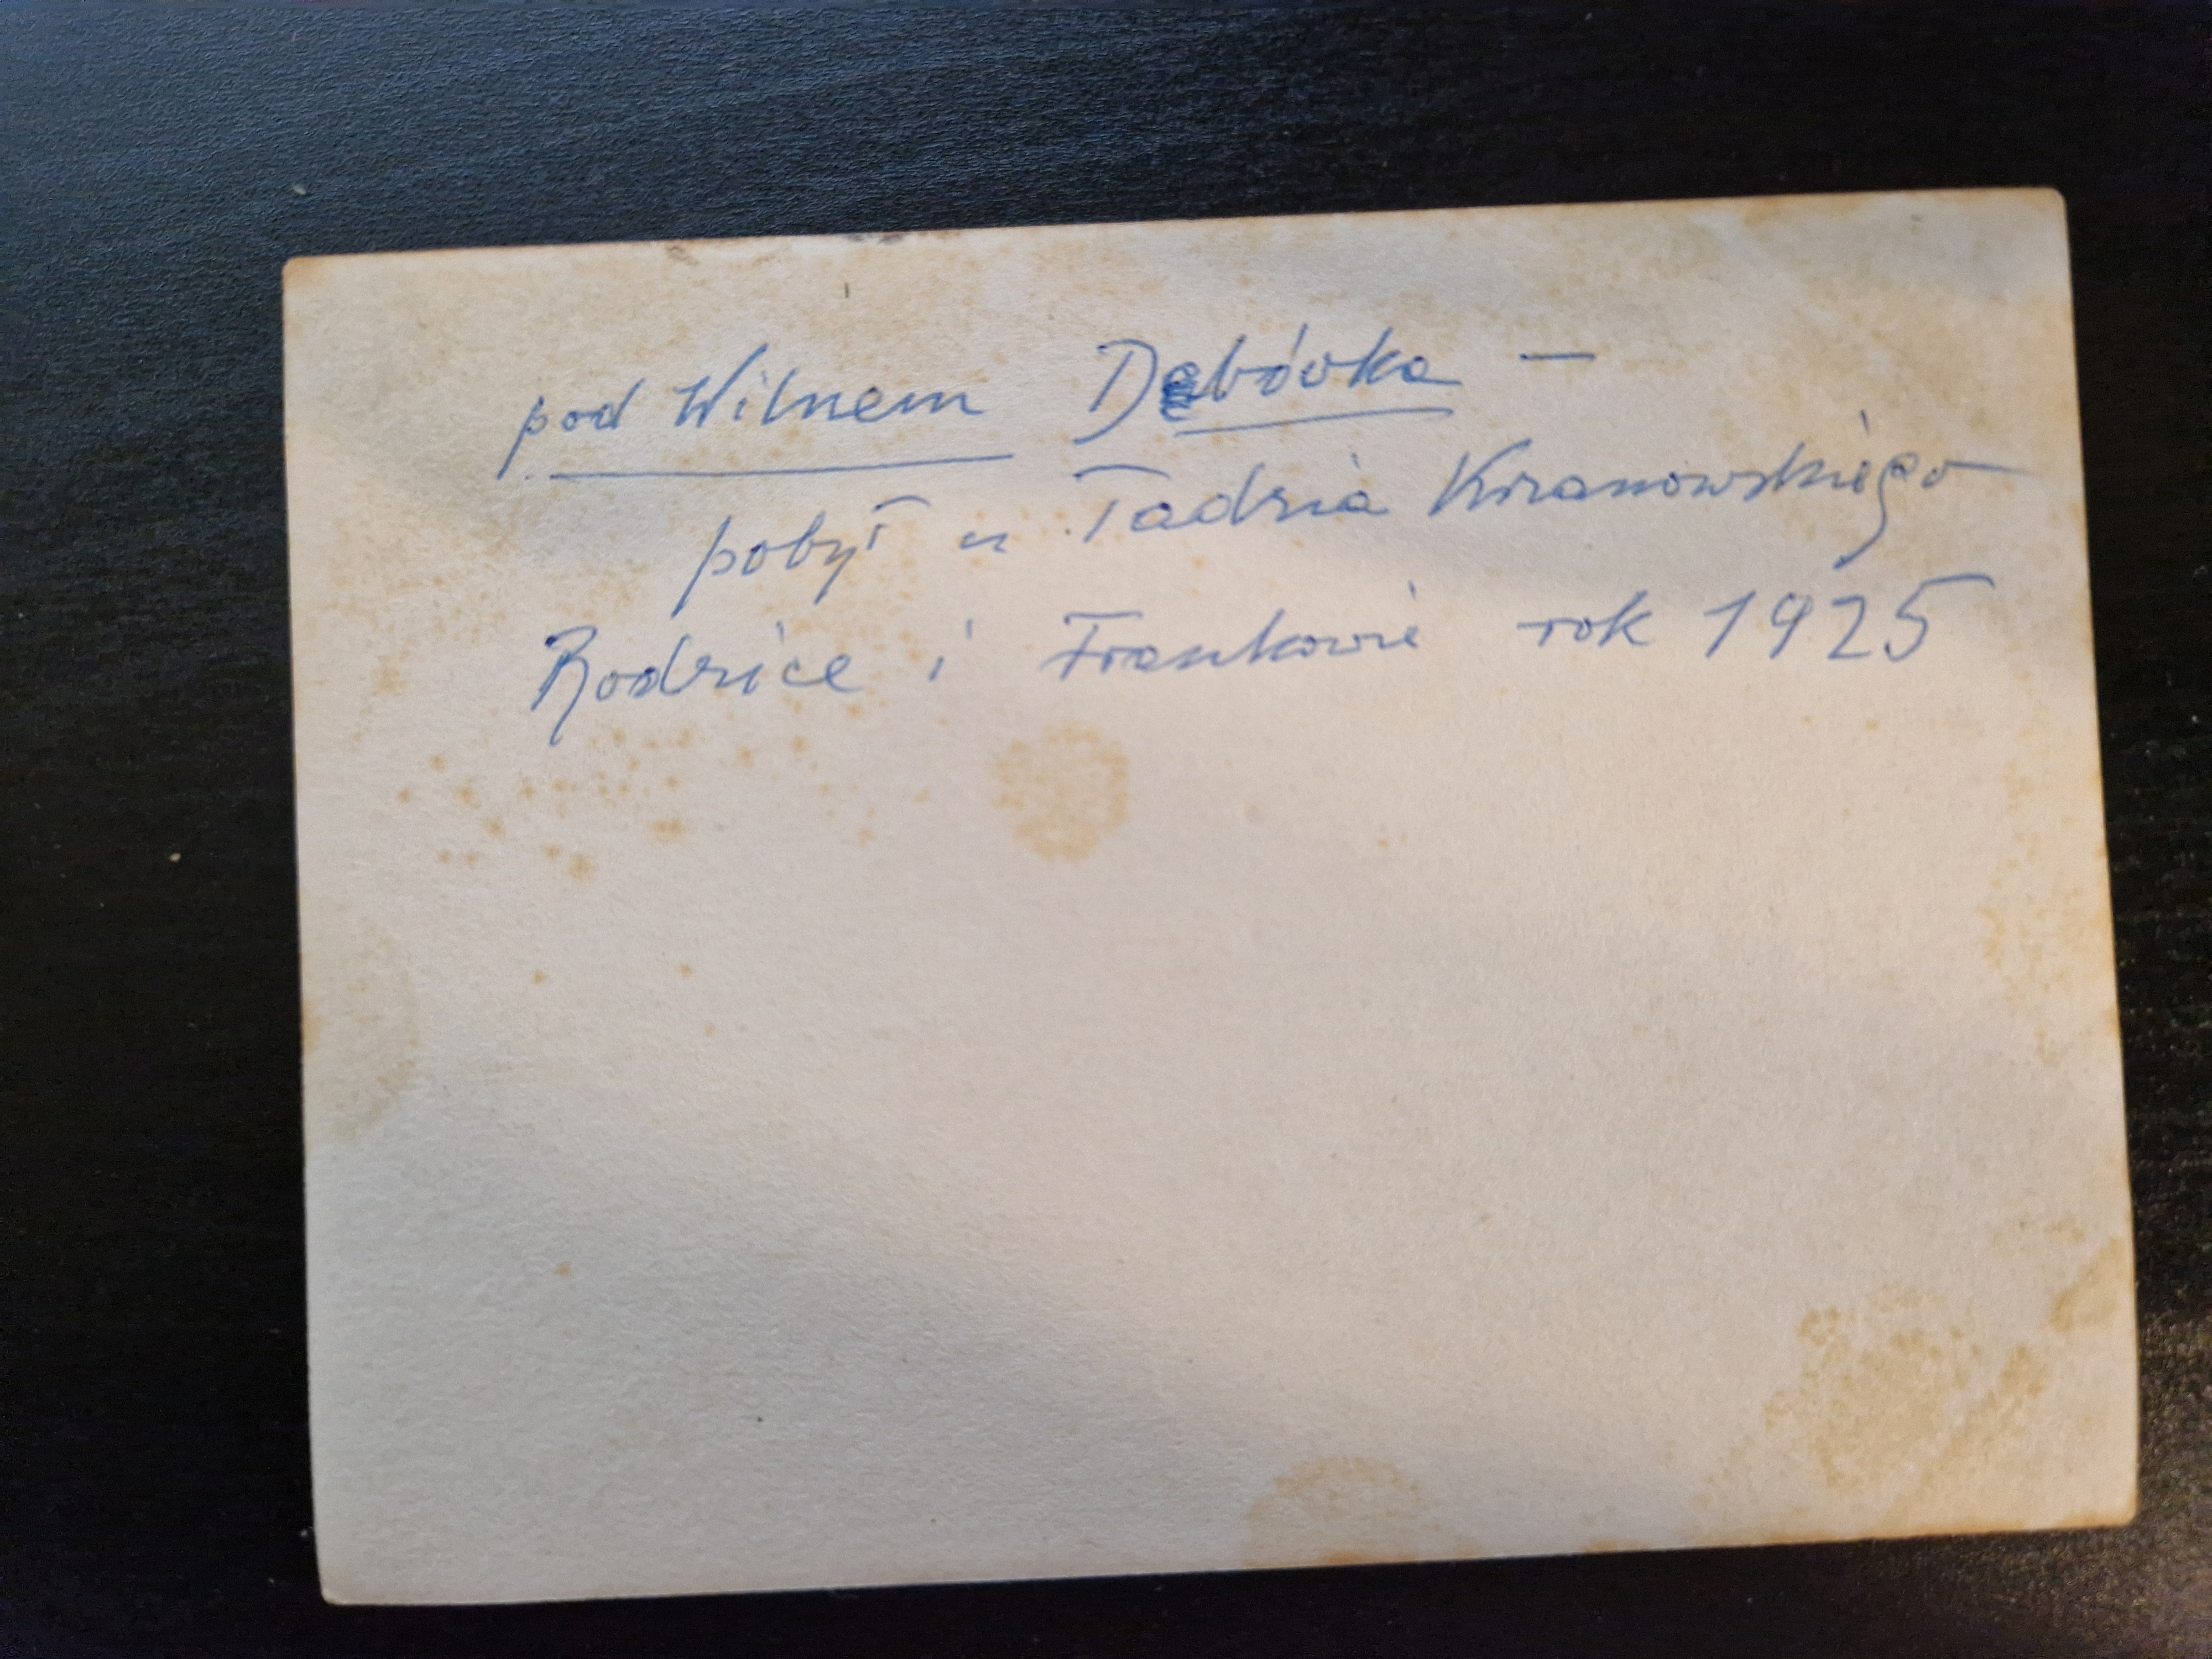 pod Wilnem Dębówka —
pobyt u Tadzia
Rodzice i Frankowie rok 1925